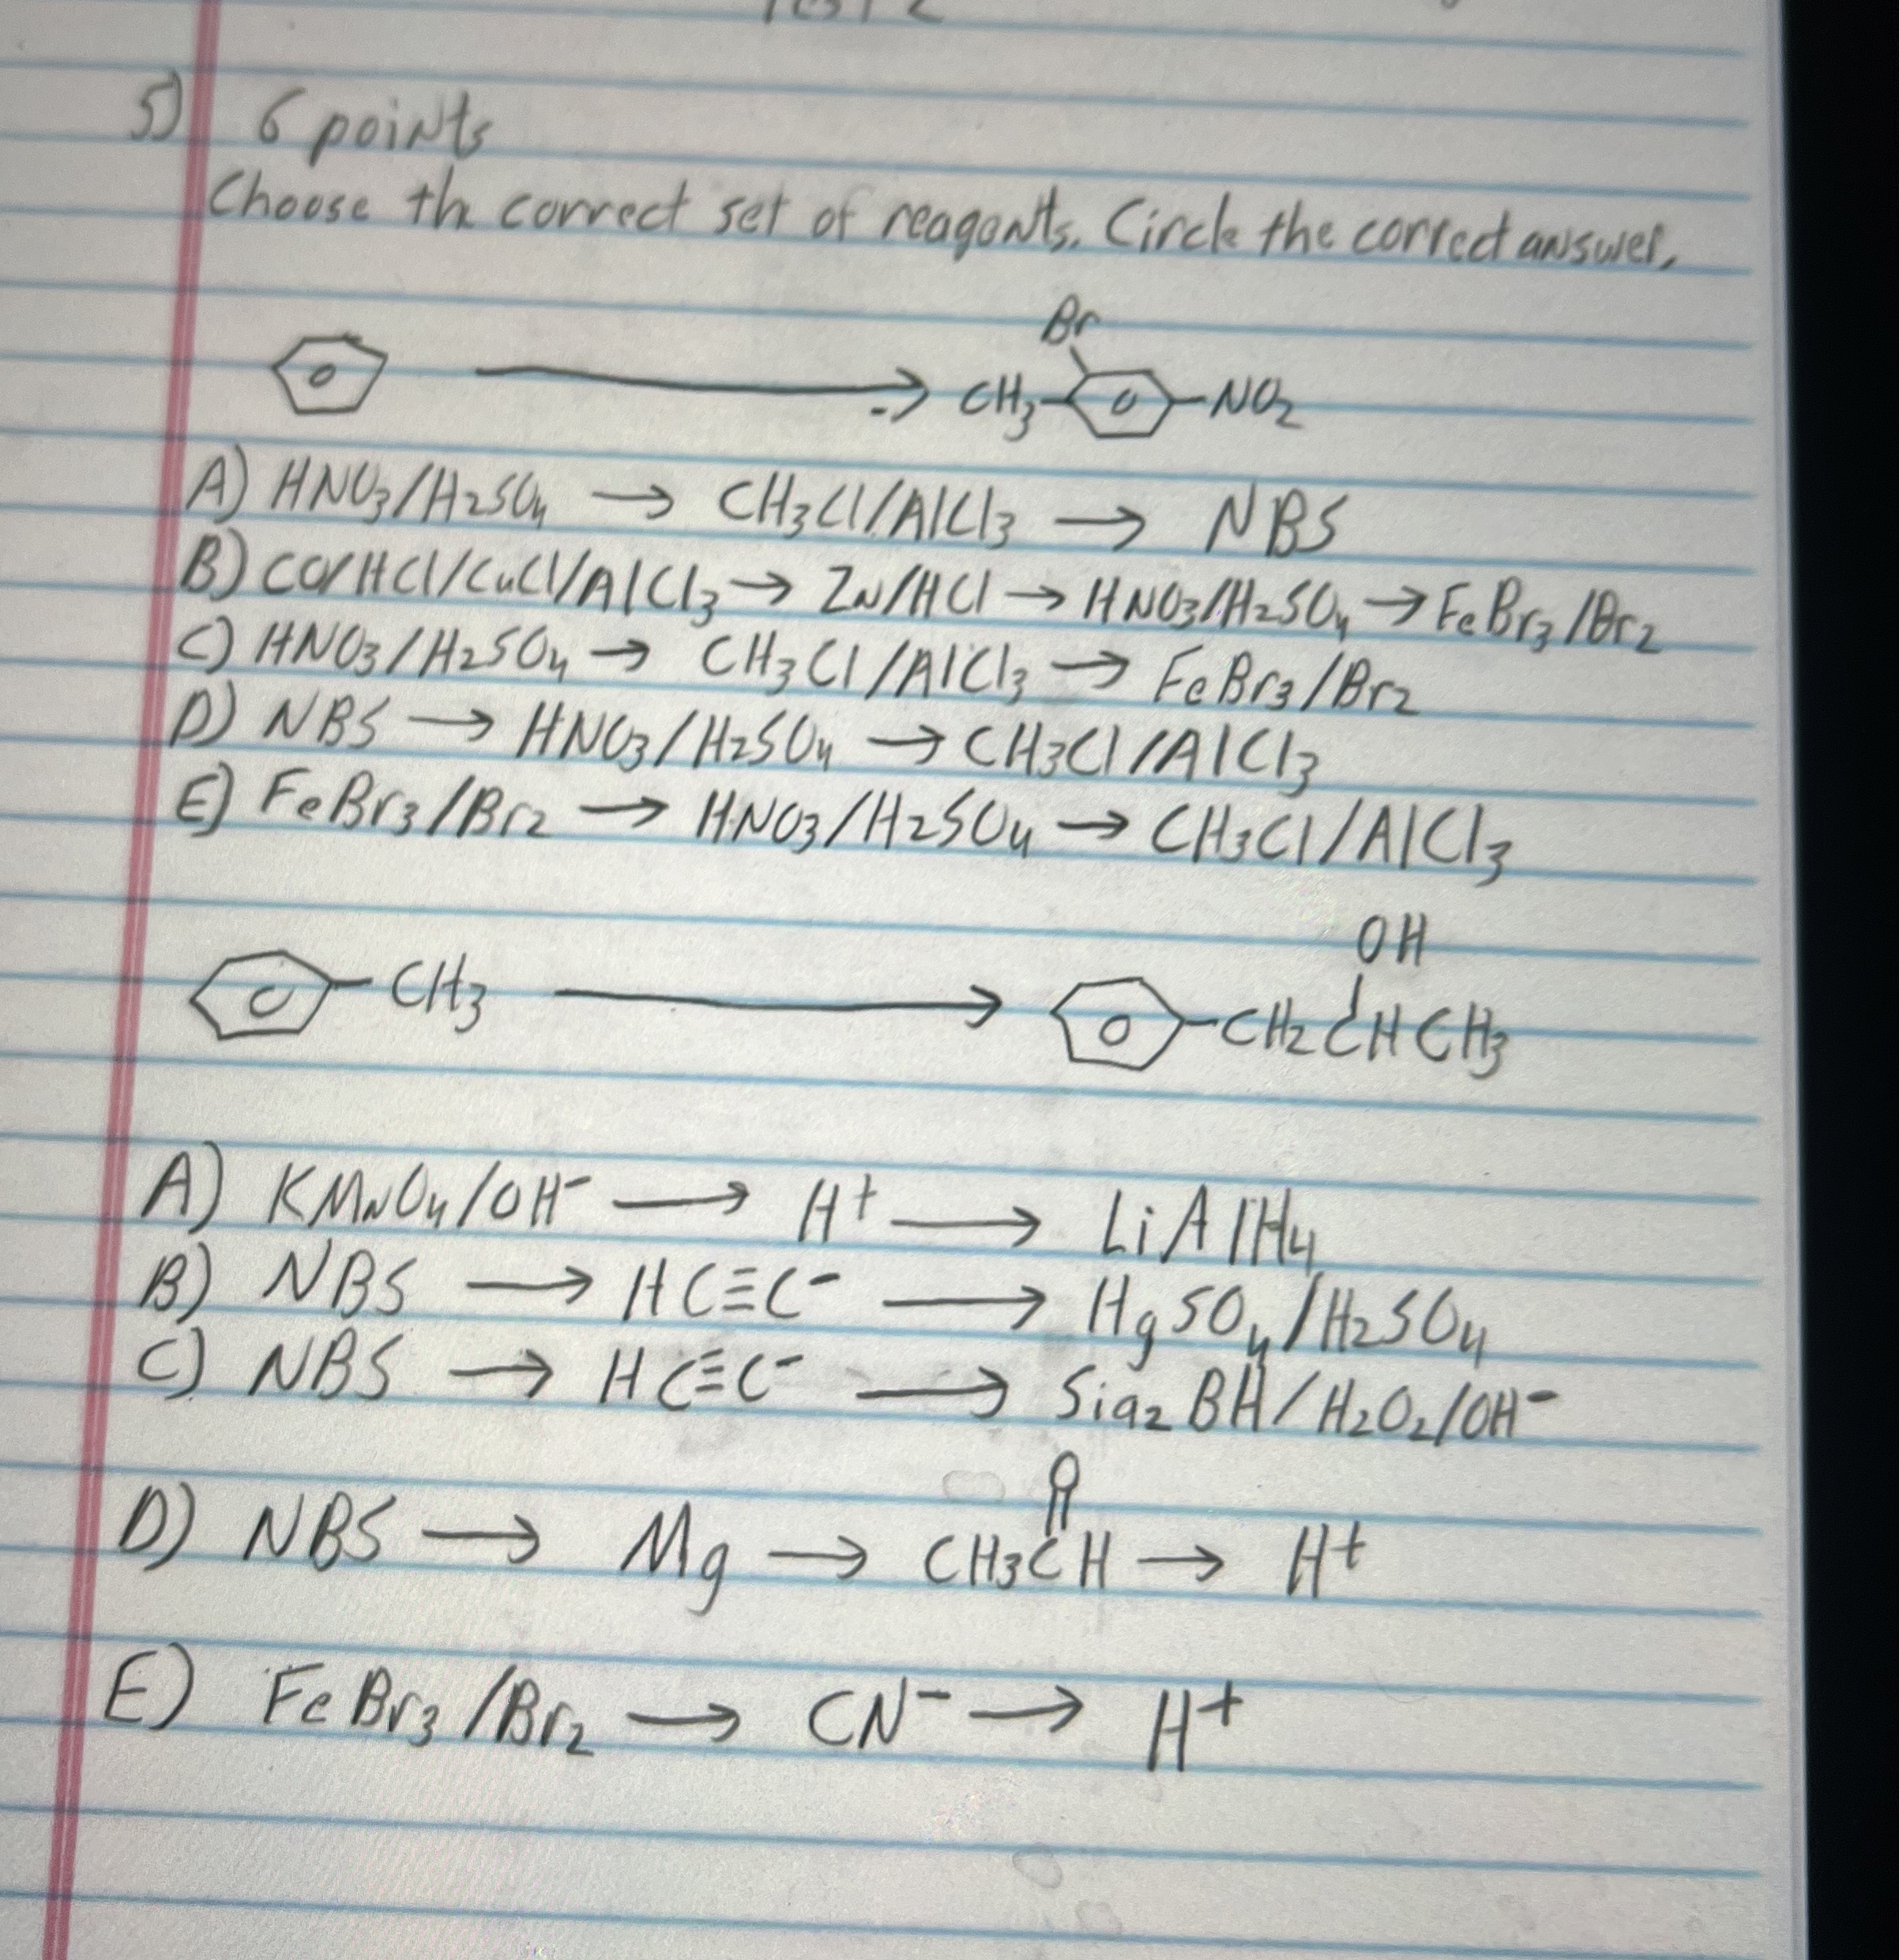 5) 6 points
Choose the correct set of reagants. Circle the correct answer.
Br
CH3 NO2
A) HNO3/H2SO4 → CH3Cl/AlCl3 → NBS
B) CO/HCl/CuCl/AlCl3 → ZN/HCl → HNO3/H2SO4 → FeBr3/Br2
C) HNO3/H2SO4 → CH3Cl/AlCl3 → FeBr3/Br2
D) NBS → HNO3/H2SO4 → CH3Cl/AlCl3
E) FeBr3/Br2 → HNO3/H2SO4 → CH3Cl/AlCl3
OH
CH3 → CH2CHCH3
A) KMNO4/OH- → H+ → LiAlH4
B) NBS → HC≡C- → HgSO4/H2SO4
C) NBS → HC≡C- → Sia2BH/H2O2/OH-
O
D) NBS → Mg → CH3CH → H+
E) FeBr3/Br2 → CN- → H+